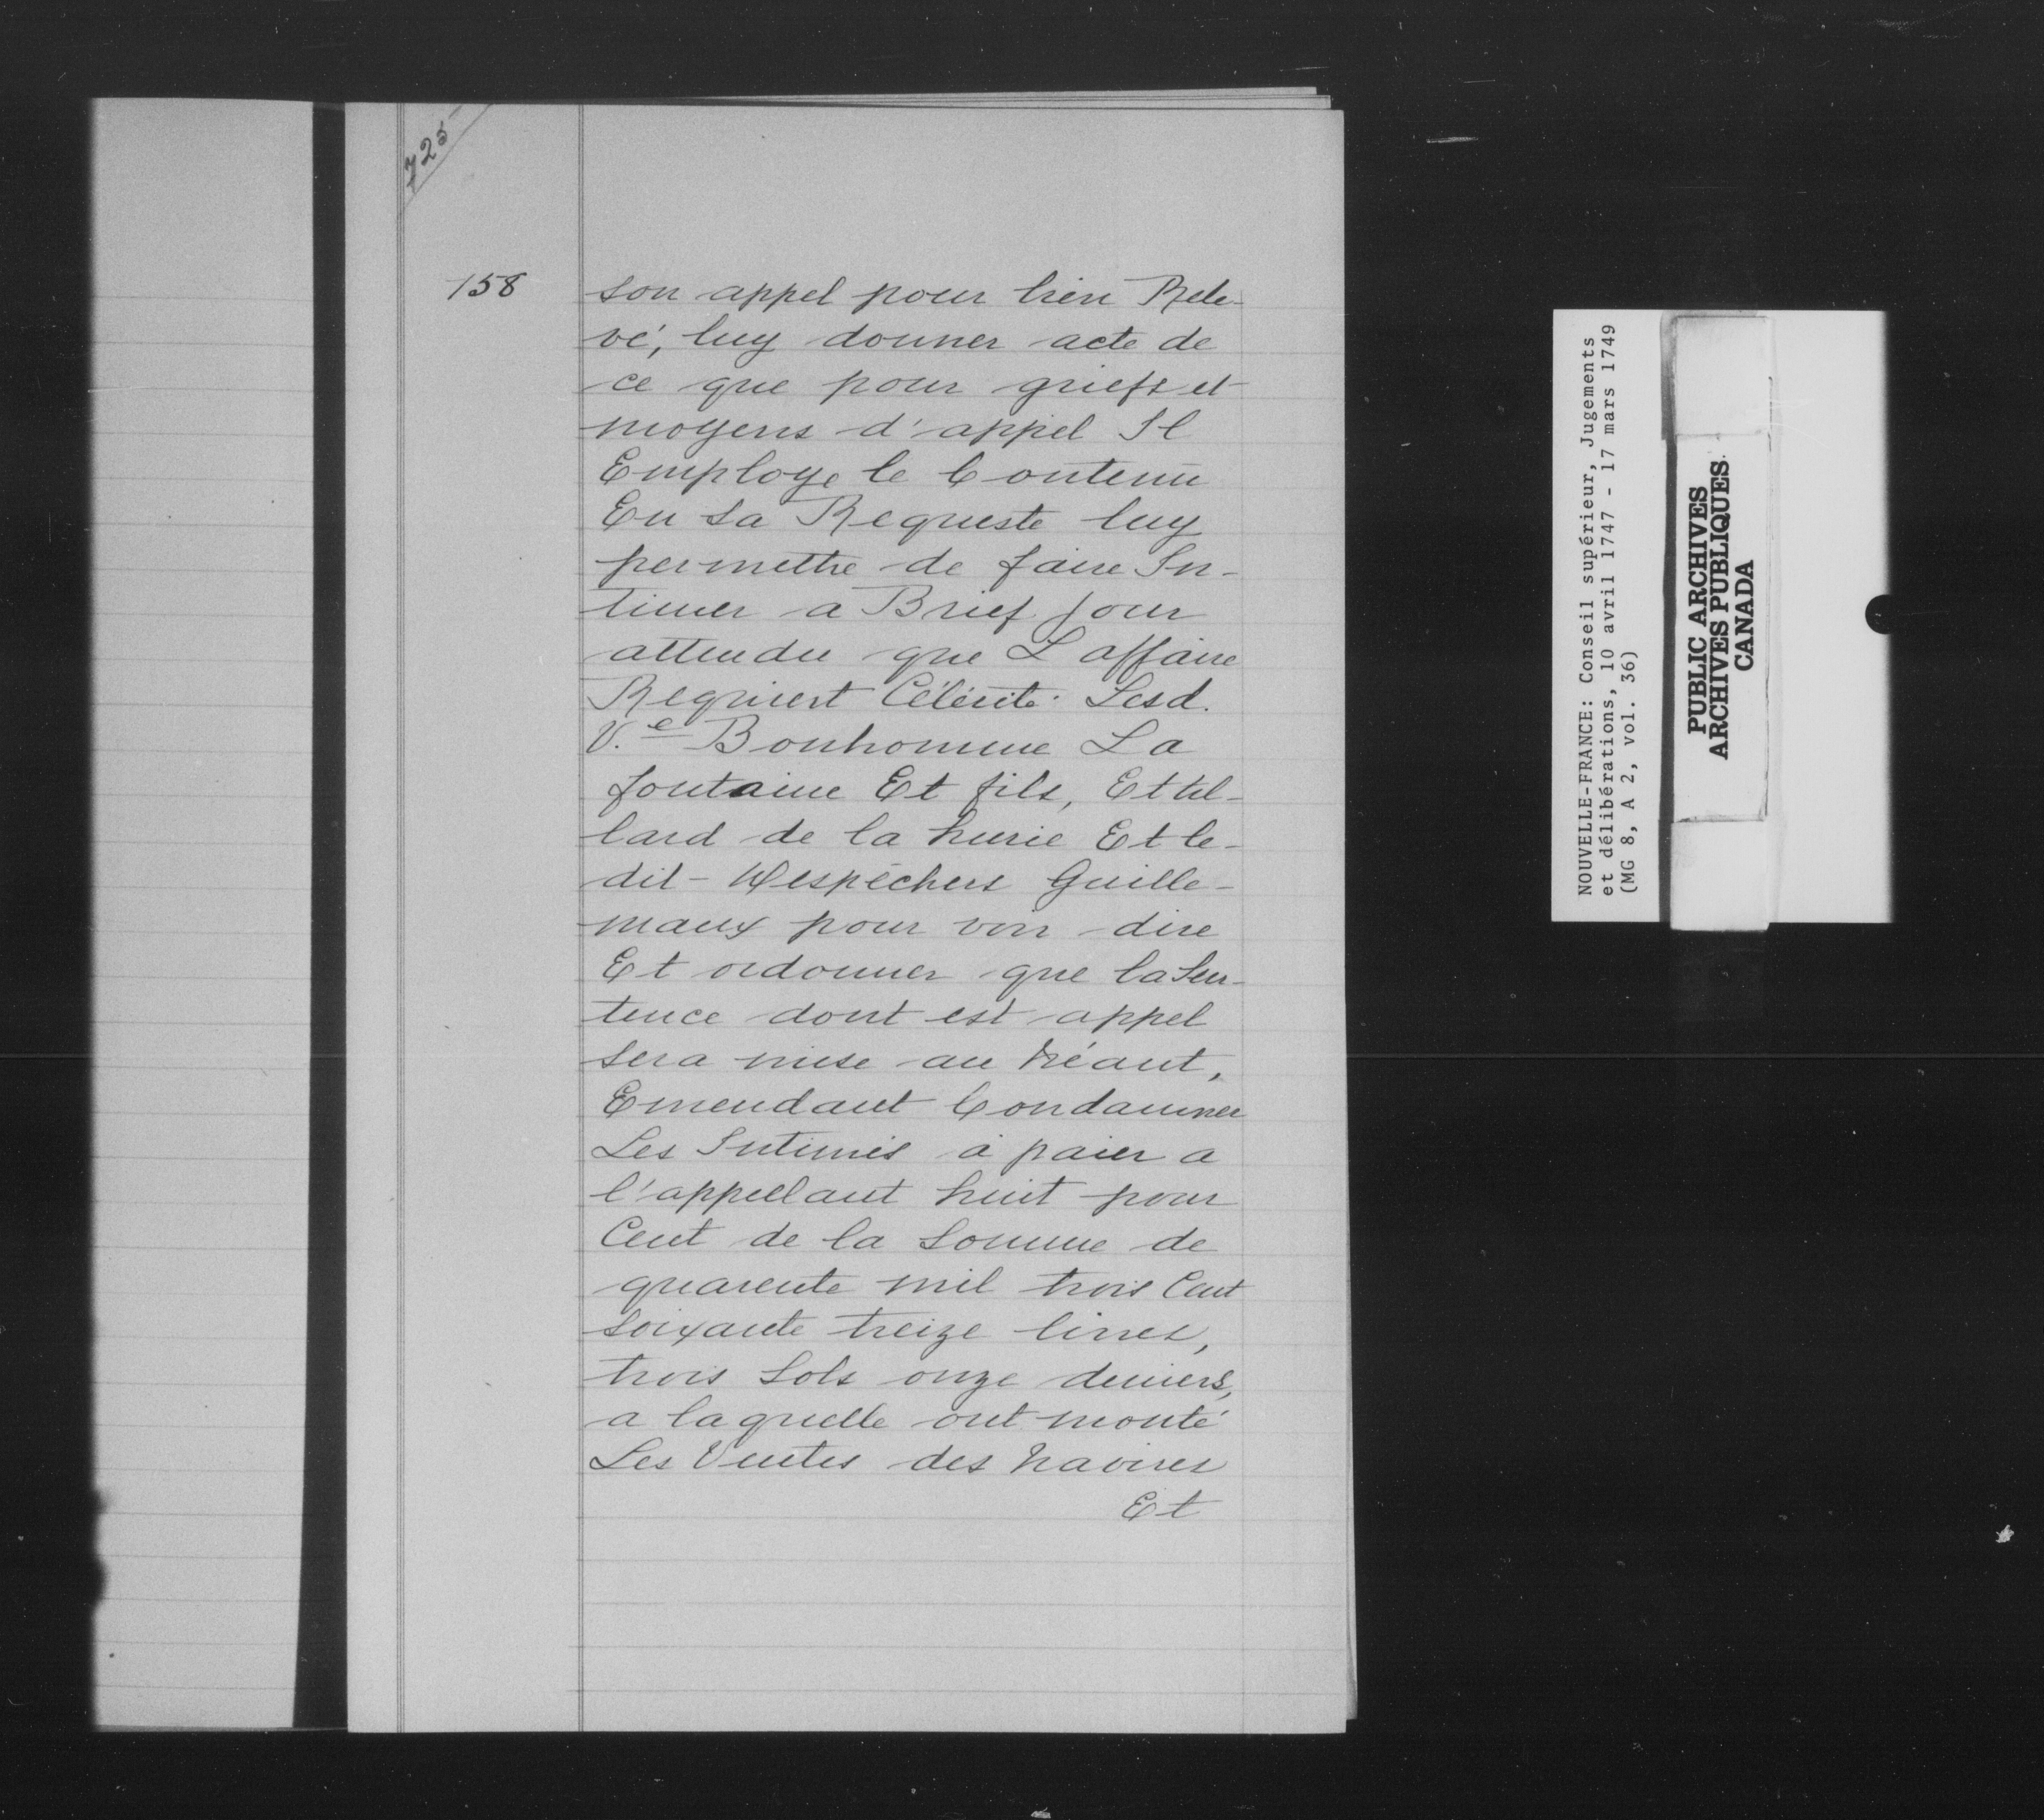 725
158
son appel pour bien Rele-
vé, luy donner acte de
ce que pour griefs et
moyens d'appel Il
Employe le Contenu
En sa Requeste luy
permettre de faire In-
timer a Brief jour
attendu que L affaire
Requiert Célérité. Lesd.
V.e Bonhomme La
fontaine Et fils, Et
lard de la Et le-
dit Despéchers Guille-
maux pour voir dire
Et ordonner que la Sen-
tence dont est appel
sera mise au Néant,
Emendant Condamner
Les Intimés à paier a
l'appellant huit pour
Cent de la Somme de
quarente mil trois Cent
Soixante treize livres,
trois Sols onze deniers,
a laquelle ont monté
Les Ventes des Navires
Et
NOUVELLE-FRANCE: Conseil supérieur, Jugements
et délibérations, 10 avril 1747 - 17 mars 1749
(MG 8, A 2, vol. 36)
PUBLIC ARCHIVES
ARCHIVES PUBLIQUES
CANADA